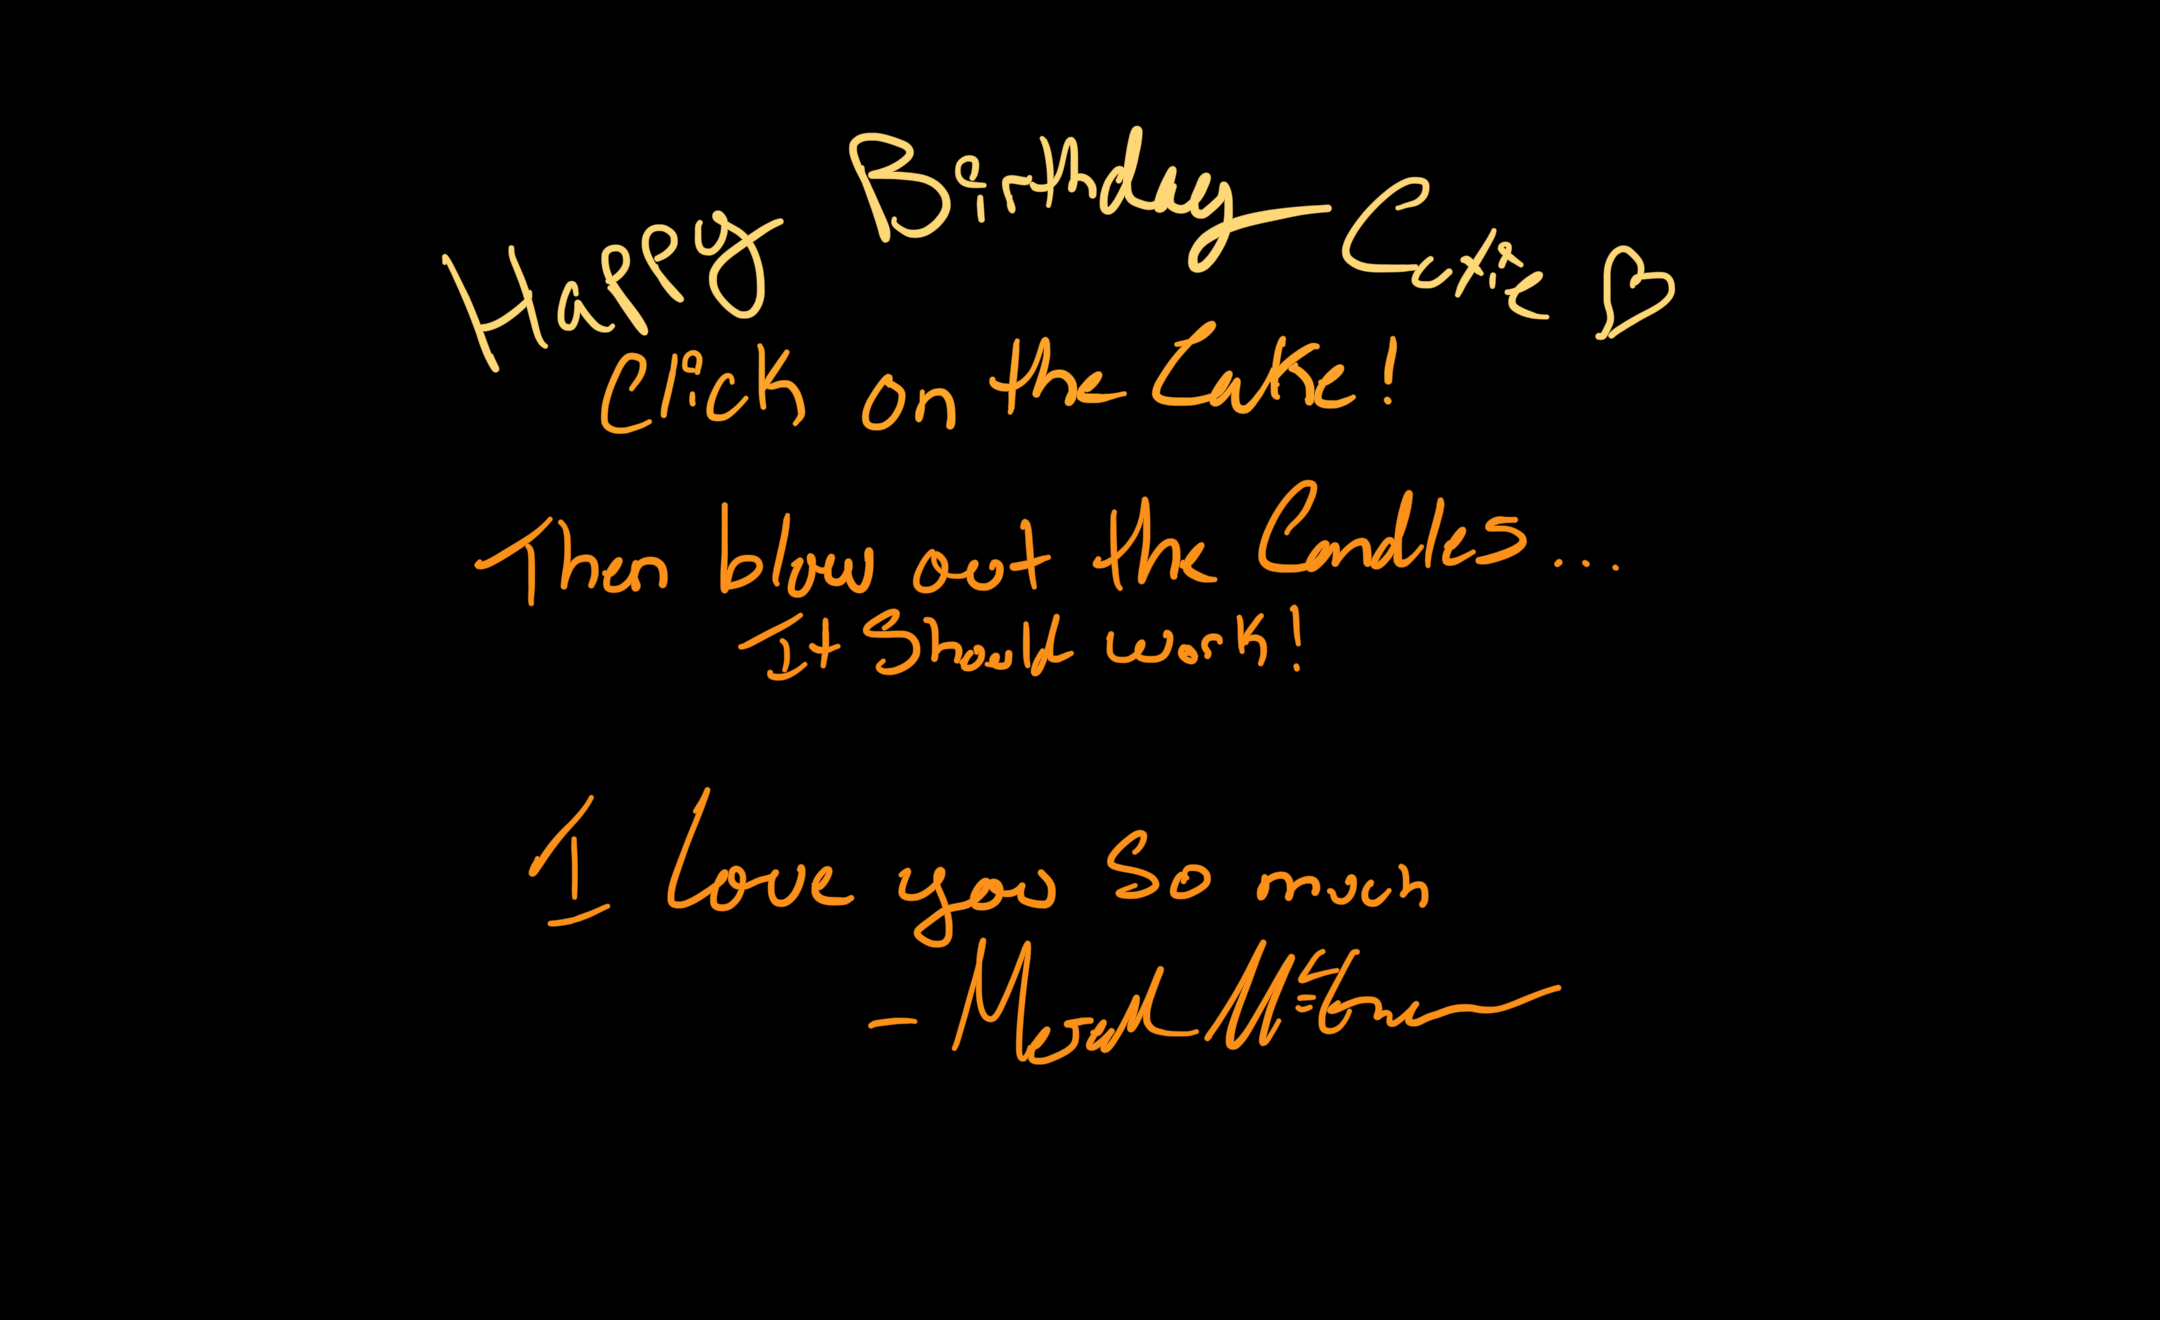 Happy Birthday Cutie
Click on the Cake!
Then blow out the Candles...
It Should work!
I Love you So much